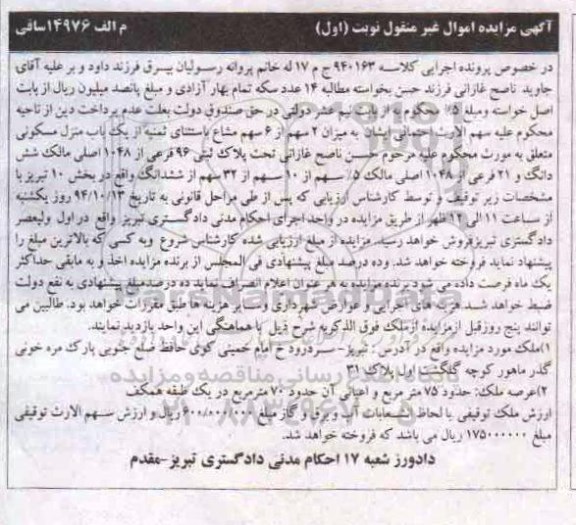 آگهی مزایده اموال غیر منقول نوبت (اول) م الف ۱۴۹۷۶سافی
در خصوص پرونده اجرایی کلاسه ۹۴۰۱۶۳ ج م ۱۷ له خانم پروانه رسولیان بیسرق فرزند داود و بر علیه آقای
جاوید ناصح غازانی فرزند حسن بخواسته مطالبه ۱۴ عدد سکه تمام بهار آزادی و مبلغ پانصد میلیون ریال از بابت
اصل خواسته ومبلغ ۵٪ محکوم به از بابت نیم عشر دولتی در حق صندوق دولت بعلت عدم پرداخت دین از ناحیه
محکوم علیه سهم الارث احتمالی ایشان به میزان ۲ سهم از ۶ سهم مشاع باستثنای ثمنیه از یک باب منزل مسکونی
متعلق به مورث محکوم علیه مرحوم حسن ناصح غازانی تحت پلاک ثبتی ۹۶ فرعی از ۱۰۴۸ اصلی مالک شش
دانگ و ۲۱ فرعی از ۱۰۴۸ اصلی مالک ۵٪ سهم از ۱۰ سهم از ۳۲ سهم از ششدانگ واقع در بخش ۱۰ تبریز با
مشخصات زیر توقیف و توسط کارشناس ارزیابی که پس از طی مراحل قانونی به تاریخ ۹۴/۱۰/۱۳ روز یکشنبه
از ساعت ۱۱ الی ۱۲ ظهر از طریق مزایده در واحد اجرای احکام مدنی دادگستری تبریز واقع در اول ولیعصر
دادگستری تبریزفروش خواهد رسید. مزایده از مبلغ ارزیابی شده کارشناس شروع وبه کسی که بالاترین مبلغ را
پیشنهاد نماید فروخته خواهد شد. وده درصد مبلغ پیشنهادی فی المجلس از برنده مزایده اخذ و به مابقی حداکثر
یک ماه فرصت داده می شود برنده مزایده به هر عنوان اعلام انصراف نماید ده درصدمبلغ پیشنهادی به نفع دولت
ضبط خواهد شد. هزینه های اجرایی و عوارض شهرداری وسایر هزینه ها طبق مقررات خواهد بود. طالبین می
توانند پنج روزقبل ازمزایده ازملک فوق الذکربه شرح ذیل با هماهنگی این واحد بازدید نمایند.
۱)ملک مورد مزایده واقع در آدرس : تبریز– سردرود خ امام خمینی کوی حافظ ضلع جنوبی پارک مره خونی
گذر ماهور کوچه گلگشت اول پلاک ۳۱
۲)عرصه ملک: حدود ۷۵ متر مربع و اعیانی آن حدود ۷۰ مترمربع در یک طبقه همکف
ارزش ملک توقیفی با لحاظ انشعابات آب وبرق و گاز مبلغ ۶۰۰/۰۰۰/۰۰۰ ریال و ارزش سهم الارث توقیفی
مبلغ ۱۷۵۰۰۰۰۰۰ ریال می باشد که فروخته خواهد شد.
دادورز شعبه ۱۷ احکام مدنی دادگستری تبریز–مقدم